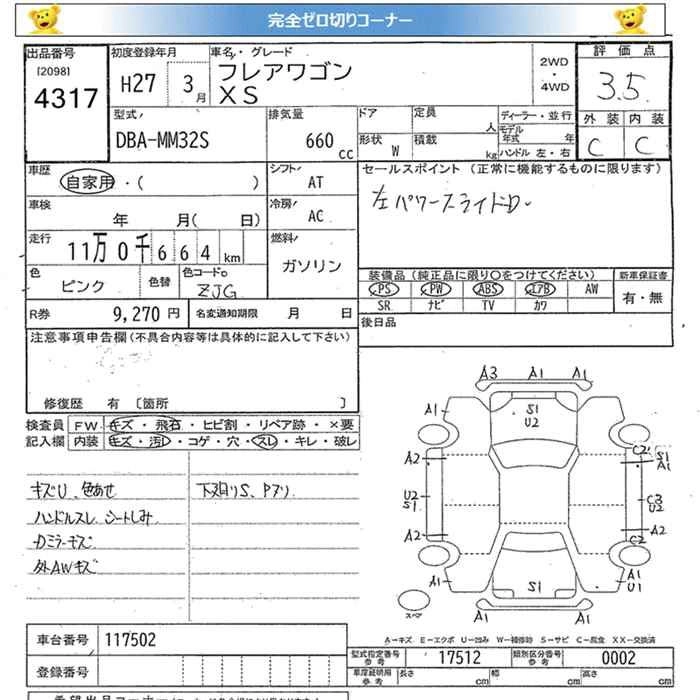 完全ゼロ切りコーナー
出品番号
[2098]
4317
初度登録年月
H27 3月
車名・グレード
フレアワゴン
XS
2WD
・
4WD
評価点
3.5
外装 内装
C C
型式
DBA-MM32S
排気量
660 cc
ドア
定員
人
ディーラー・並行
形状
W
積載
kg
モデル年式
年
ハンドル 左・右
車歴
自家用・( )
シフト
AT
セールスポイント (正常に機能するものに限ります)
左パワースライドD
車検
年 月( 日)
冷房
AC
走行
11万0千664km
燃料
ガソリン
色
ピンク
色替
色コードNo
ZJG
装備品 (純正品に限り○をつけてください)
新車保証書
PS PW ABS エアB AW
SR ナビ TV カワ
有・無
R券 9,270円
名変通知期限 月 日
後日品
注意事項申告欄(不具合内容等は具体的に記入して下さい)
修復歴 有 〔箇所 〕
検査員
記入欄
FW キズ・飛石・ヒビ割・リペア跡・×要
内装 キズ・汚レ・コゲ・穴・スレ・キレ・破レ
キズU、色あせ
下廻りS、Pアリ
ハンドルスレ シートしみ
Dミラーキズ
外AWキズ
A3 A1 A1
A1 S1 U2 A1
A2 C2 S1 A1
U2 S1 C3 U2
A2 A2 C2
A1 S1 A1 U1
A1 A1
スペア
A－キズ E－エクボ U－凹み W－補修跡 S－サビ C－腐食 XX－交換済
車台番号 117502
登録番号
型式指定番号
参考
17512
類別区分番号
参考
0002
車庫証明用
参考
長さ cm
幅 cm
高さ cm